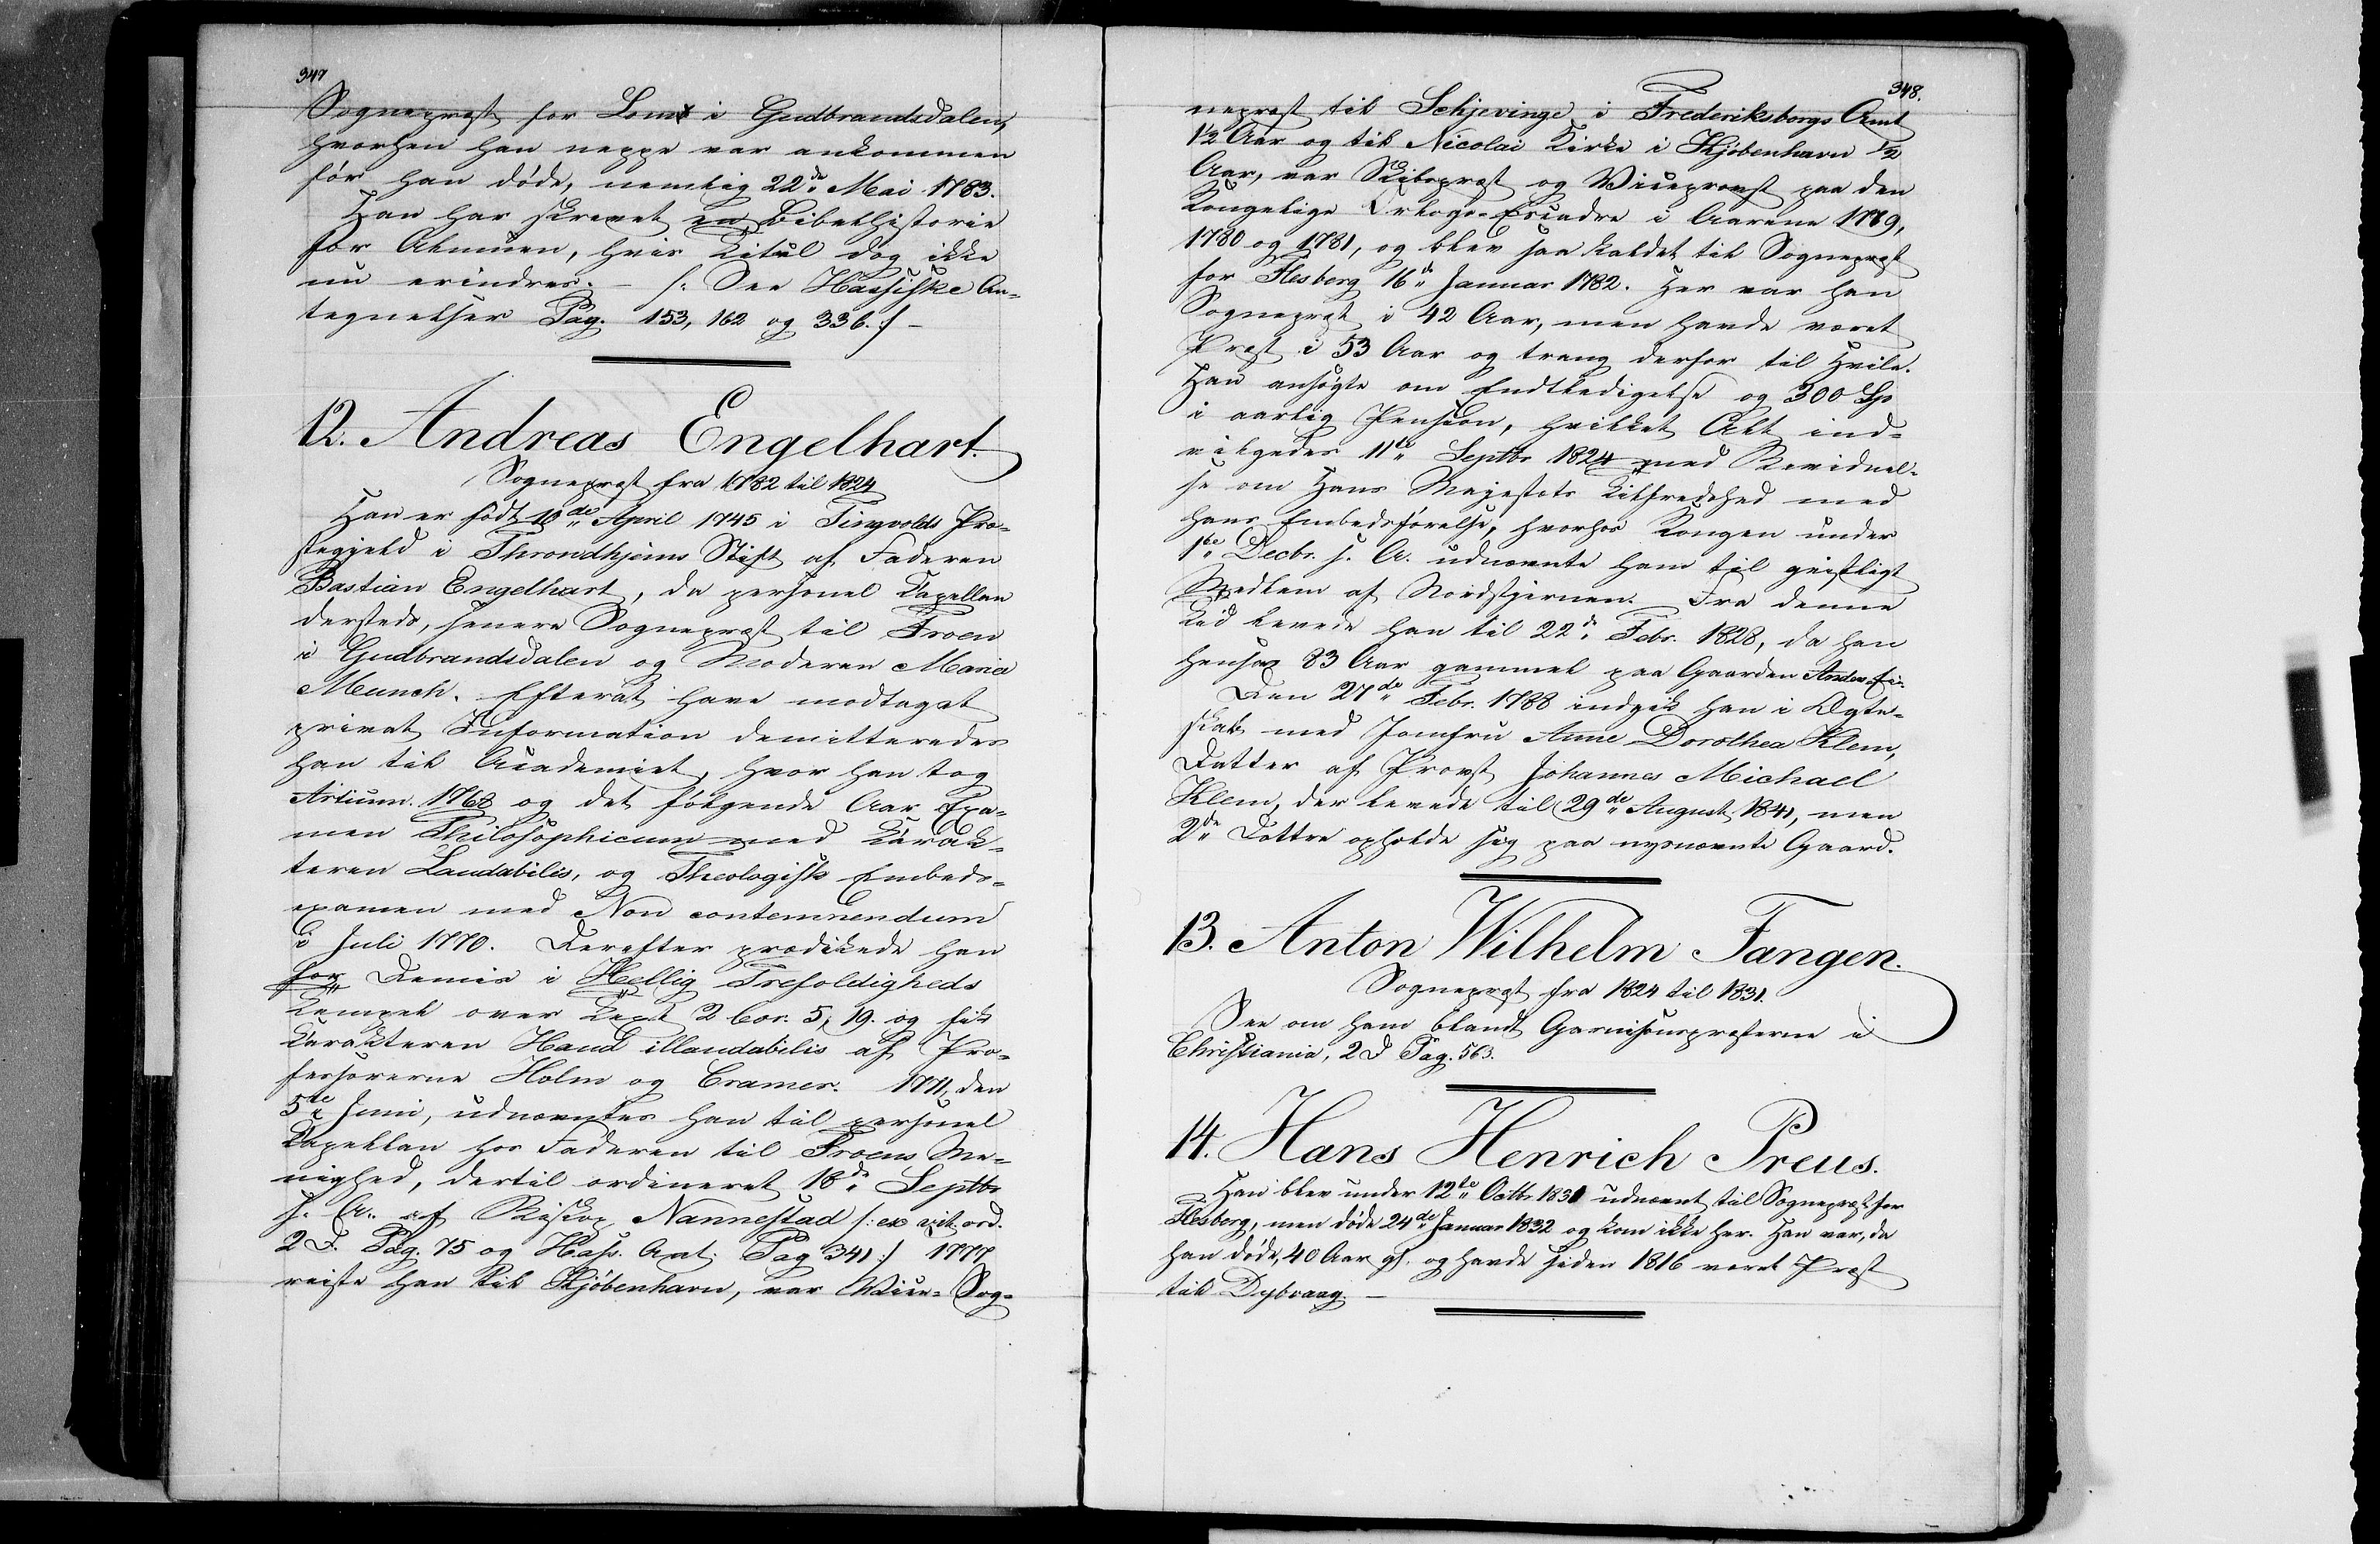 347
Sognepræst for Lom i Gudbrandsdalen,
hvorhen han neppe var ankommen
før han døde, nemlig 22de Mai 1783.
Han har skrevet en Bibelhistorie
for Almuen, hvis Titul dog ikke
nu erindres. – /: See Hassiske An-
tegnelser Pag. 153, 162 og 336 :/ –
12. Andreas Engelhart.
Sognepræst fra 1782 til 1824
Han er født 10de April 1745 i Tingvolds Præ-
stegjeld i Throndhjems Stift af Faderen
Bastian Engelhart, da personel Kapellan
dersteds, senere Sognepræst til Froen
i Gudbrandsdalen og Moderen Maria
Munch. Efterat have modtaget
privat Information demitteredes
han til Academiet, hvor han tog
Artium 1768 og det følgende Aar Exa-
men Philosophicum med Karak-
teren Laudabilis, og Theologisk Embeds-
examen med Non contemnendum
i Juli 1770. Derefter prædikede han
for Demis i Hellig Trefoldigheds
Tempel over Text 2 Cor. 5, 19. og fik
Karakteren Haud illaudabilis af Pro-
fessorerne Holm og Cramer. 1771, den
5te Juni, udnævntes han til personel
Kapellan hos Faderen til Froens Me-
nighed, dertil ordineret 18de Septbr
s. A. af Biskop Nannestad /: ex vit. ord.
2 D. Pag. 75 og Hass. Ant. Pag 341 :/ 1777
reiste han til Kjøbenhavn, var Vice-Sog-
348.
nepræst til Schjevinge i Frederiksborgs Amt
1/2 Aar og til Nicolai Kirke i Kjøbenhavn 1/2
Aar, var Skibspræst og Viceprovst paa den
Kongelige Orlogs-Escadre i Aarene 1779,
1780 og 1781, og blev saa kaldet til Sognepræst
for Flesberg 16de Januar 1782. Her var han
Sognepræst i 42 Aar, men havde været
Præst i 53 Aar og trang derfor til Hvile.
Han ansøgte om Entledigelse og 300 Sp
i aarlig Pension, hvilket Alt ind-
vilgedes 11te Septbr 1824 med Bevidnel-
se om Hans Majestæts Tilfredshed med
hans Embedsførelse, hvorhos Kongen under
1te Decbr. s. A. udnævnte ham til geistligt
Medlem af Nordstjernen. Fra denne
Tid levede han til 22de Febr. 1828, da han
hensov 83 Aar gammel paa Gaarden
Den 27de Febr. 1788 indgik han i Ægte-
skab med Jomfru Anne Dorothea Klem,
Datter af Provst Johannes Michael
Klem, der levede til 29de August 1841, men
2de Døttre opholde sig paa nysnævnte Gaard.
13. Anton Wilhelm Fangen.
Sognepræst fra 1824 til 1831.
See om ham blandt Garnisonspræsterne i
Christiania, 2 D Pag. 563.
14. Hans Henrich Preus.
Han blev under 12te Octbr 1831 udnævnt til Sognepræst for
Flesberg, men døde 24de Januar 1832 og kom ikke her. Han var, da
han døde, 40 Aar gl. og havde siden 1816 været Præst
til Dybvaag. –